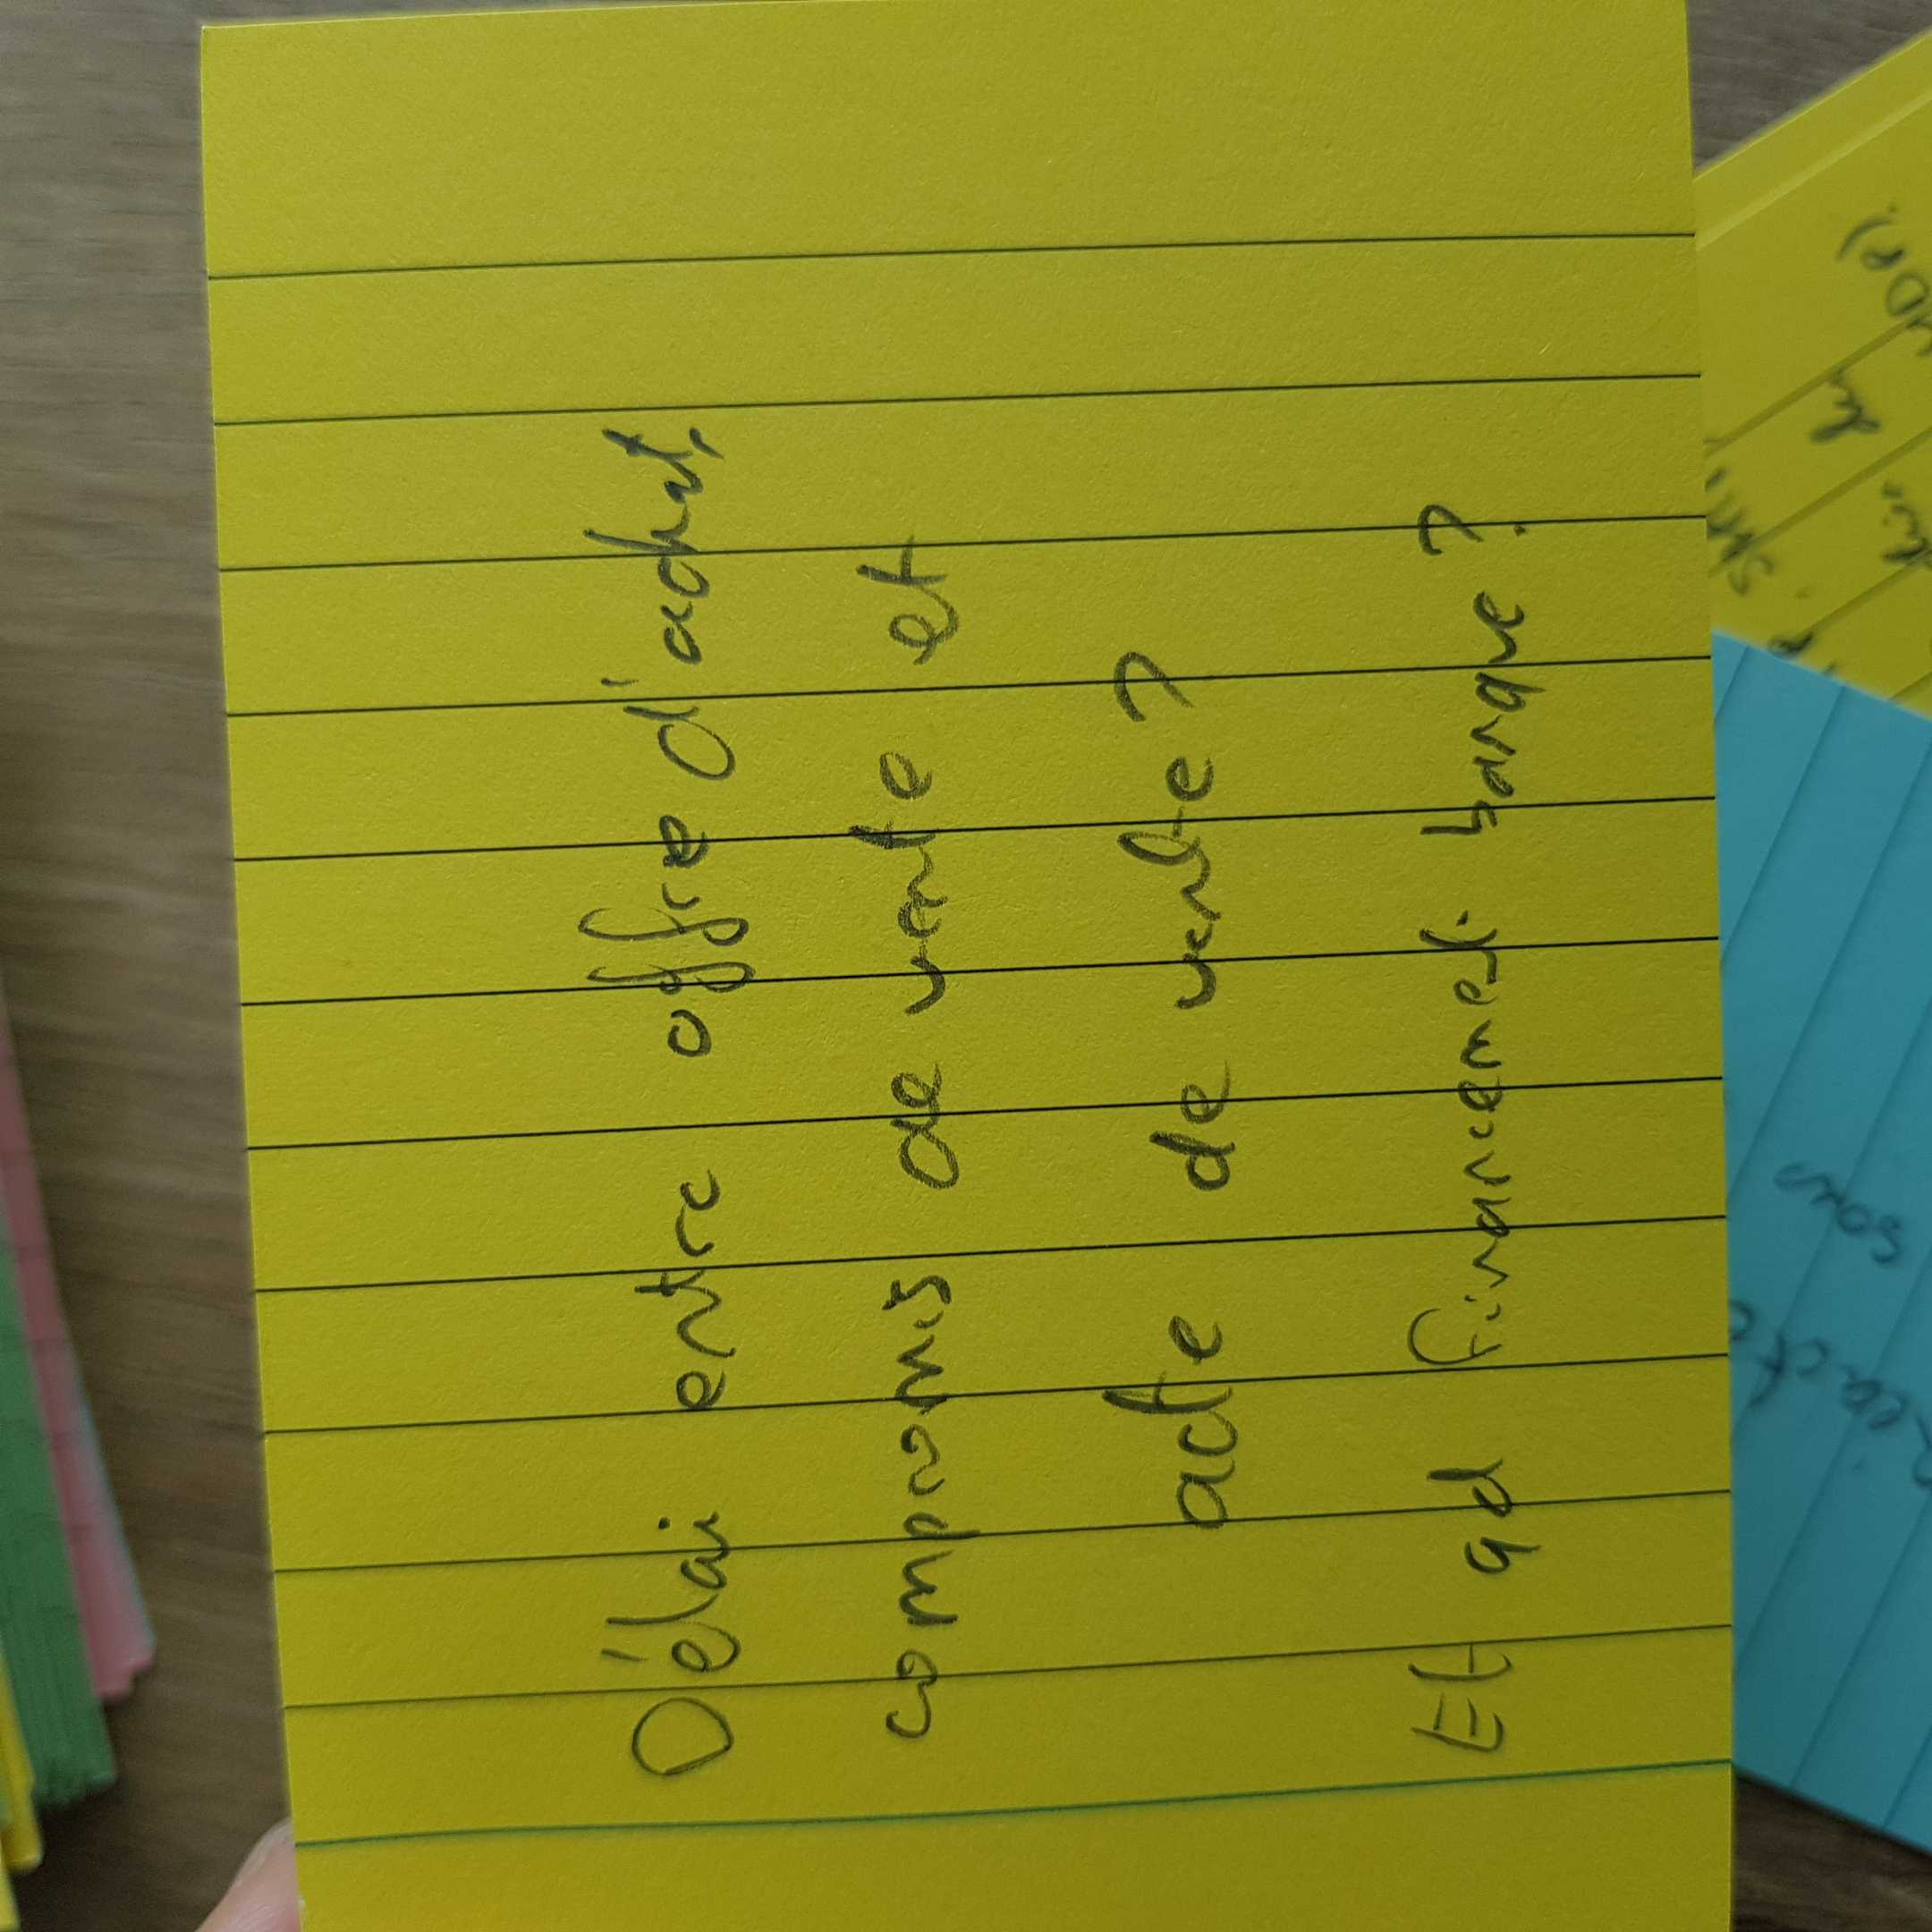 Délai entre offre d'achat,
compromis de vente et
acte de vente ?
Et qd financement banque ?
sous